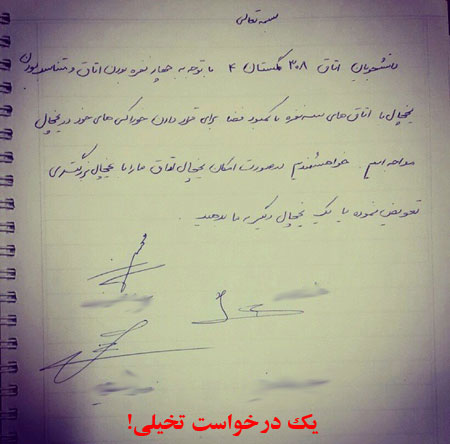 بسمه تعالی
دانشجویان اتاق ۳۰۸ گلستان ۴ با توجه به چهار نفره بودن اتاق و متناسب نبودن
یخچال با اتاق های سه نفره با کمبود فضا برای قرار دادن خوراکی های خود در یخچال
مواجه ایم. خواهشمندیم در صورت امکان یخچال اتاق ما را با یخچال بزرگتری
تعویض نموده یا یک یخچال دیگر به ما بدهید.
یک درخواست تخیلی!